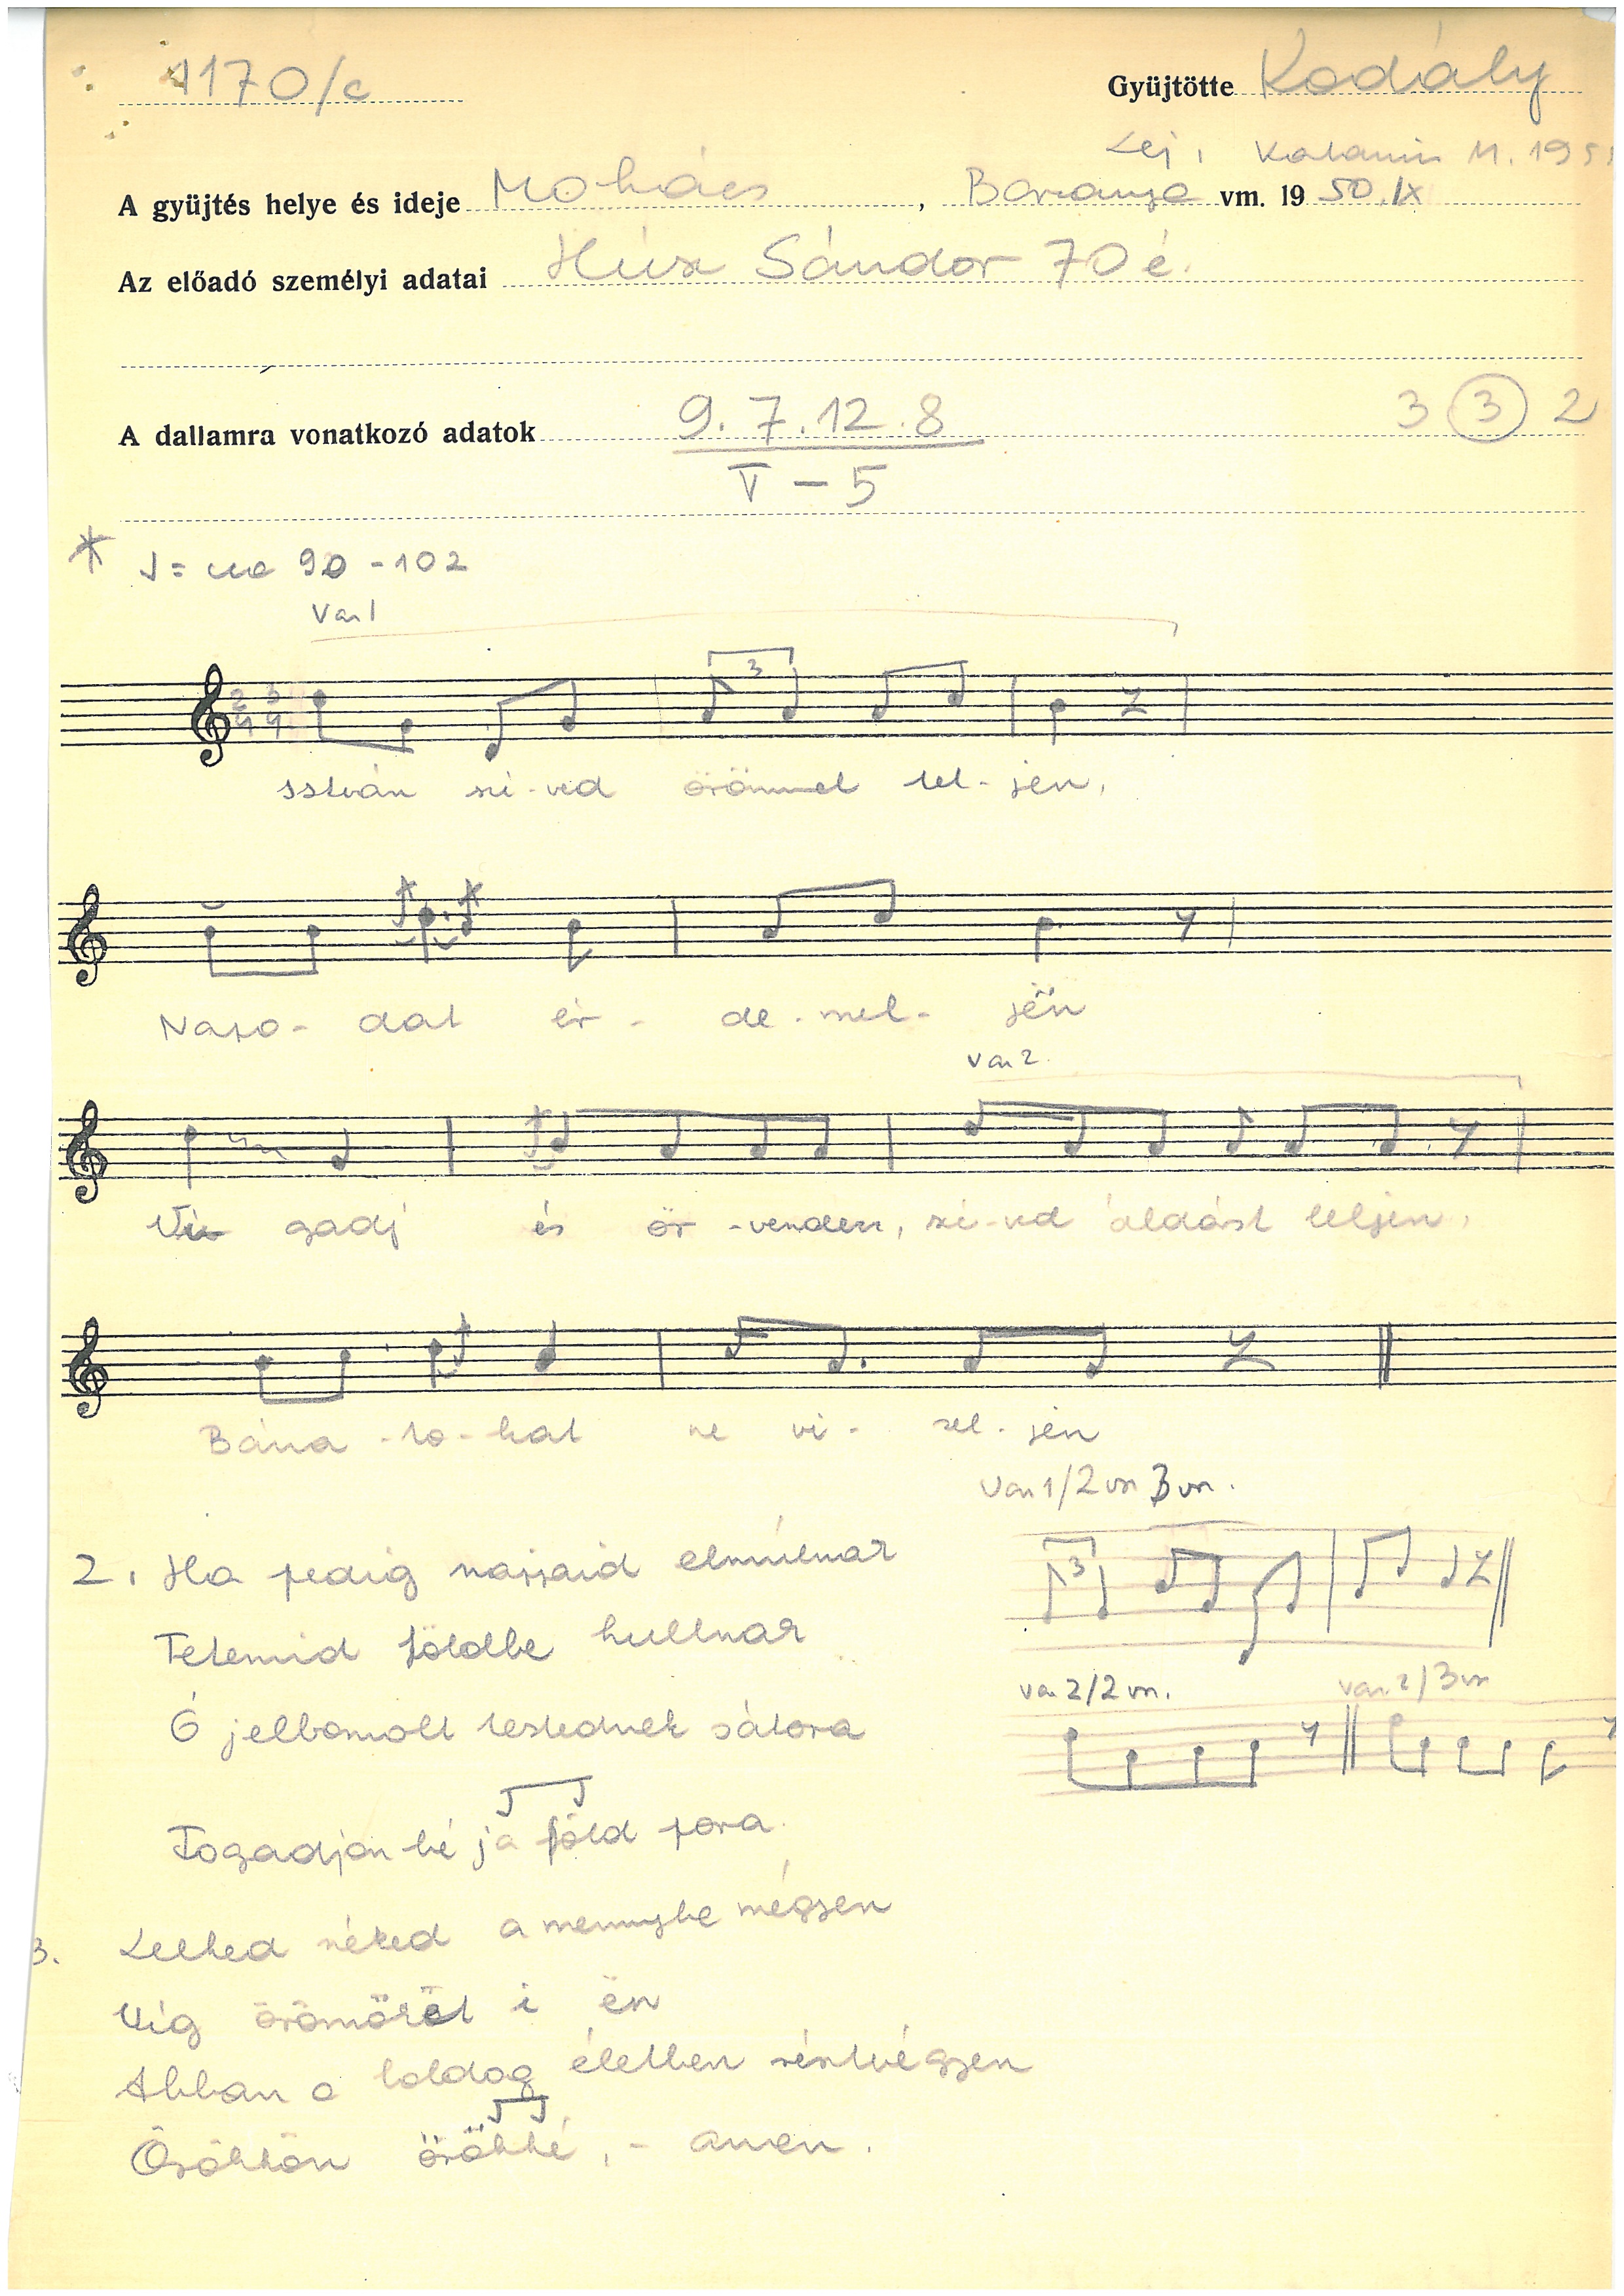 1170/c
Gyüjtötte Kodály
Lej.
A gyüjtés helye és ideje Mohács, Baranya vm. 1950.IX
Az előadó személyi adatai Húsz Sándor 70 é.
A dallamra vonatkozó adatok 9. 7. 12. 8
3 3 2
V – 5
* ♩= ca 90 - 102
Var 1
2 3
4 4
3
István szi-ved örömmel tel-jen,
Napo-dat ér-de-mel-jën
Var 2.
Vi gadj és ör-venden, szi-ved áldást leljen,
Bána-to-kat ne vi-sel-jen
Var 1/2 vsz 3 vsz.
3
2. Ha pedig napjaid elmúlnak
Tetemid földbe hullnak
var 2/2 vsz. var. 2/3 vsz
Ó felbomolt testednek sátora
Fogadjon bé ja föld pora.
3. Lelked néked a mennybe mégyen
Víg örömöröt
Abban a boldog életben résztvégyen
Örökkön örökké, - amen.